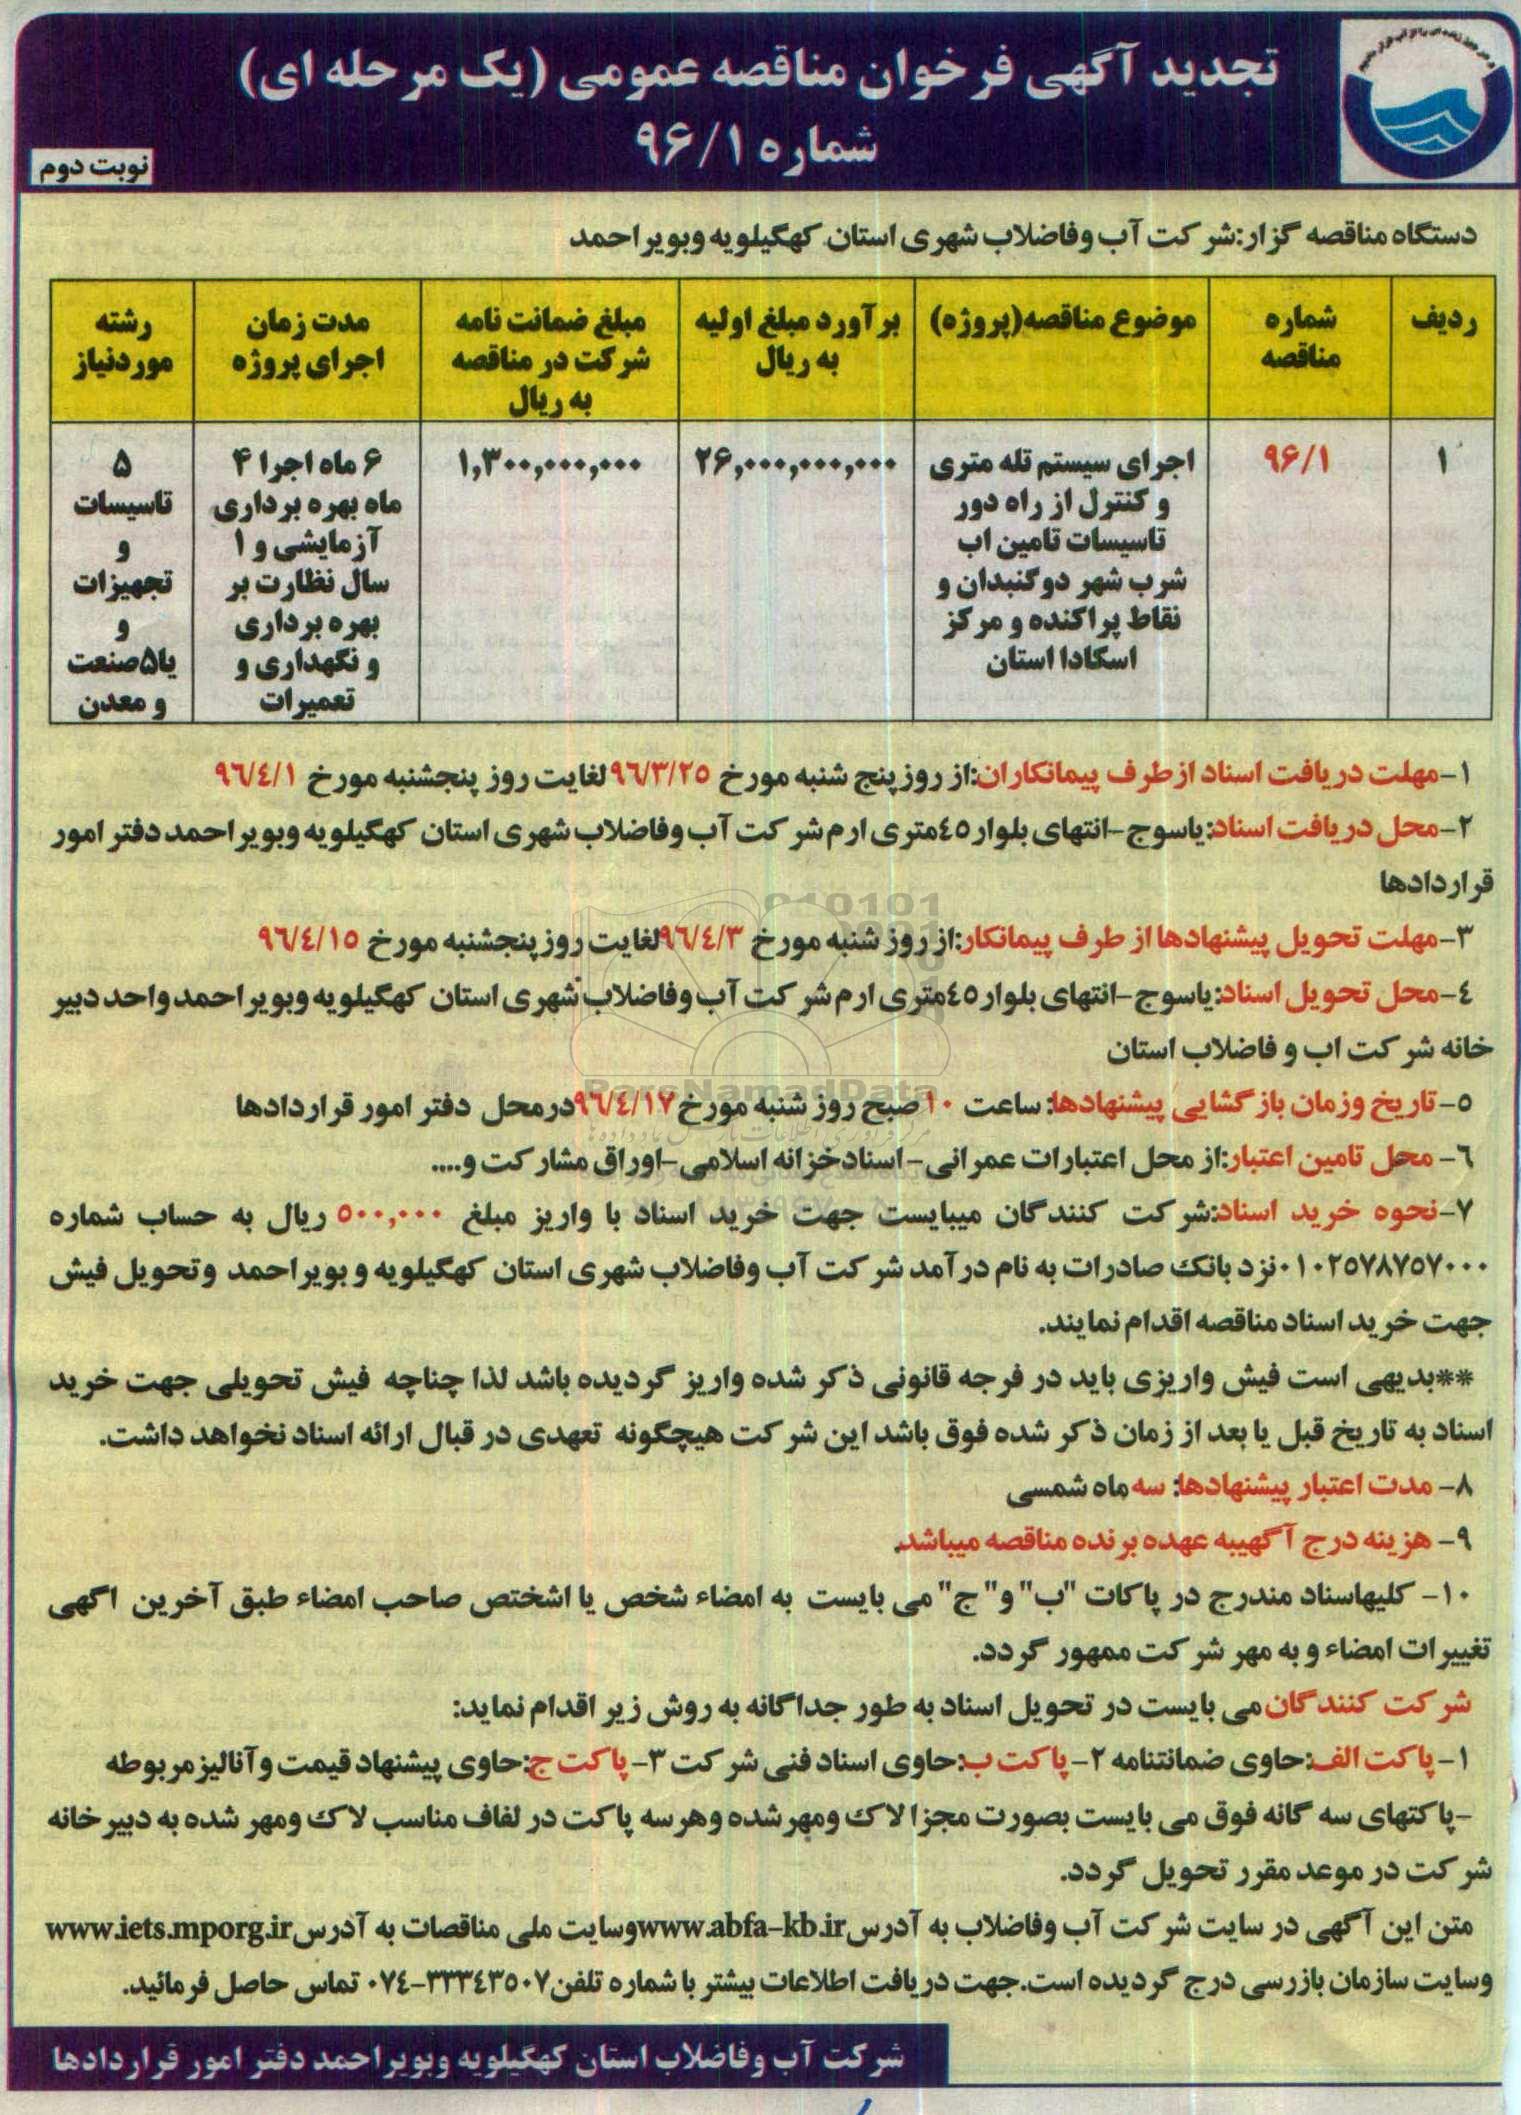 تجدید آگهی فرخوان مناقصه عمومی (یک مرحله ای)
شماره ۹۶/۱
نوبت دوم
دستگاه مناقصه گزار:شرکت آب وفاضلاب شهری استان کهگیلویه وبویراحمد
ردیف
شماره
مناقصه
موضوع مناقصه(پروژه)
برآورد مبلغ اولیه
به ریال
مبلغ ضمانت نامه
شرکت در مناقصه
به ریال
مدت زمان
اجرای پروژه
رشته
موردنیاز
۱
۹۶/۱
اجرای سیستم تله متری
و کنترل از راه دور
تاسیسات تامین اب
شرب شهر دوگنبدان و
نقاط پراکنده و مرکز
اسکادا استان
۲۶,۰۰۰,۰۰۰,۰۰۰
۱,۳۰۰,۰۰۰,۰۰۰
۶ ماه اجرا ۴
ماه بهره برداری
آزمایشی و ۱
سال نظارت بر
بهره برداری
و نگهداری و
تعمیرات
۵
تاسیسات
و
تجهیزات
و
یا۵صنعت
و معدن
۱-مهلت دریافت اسناد ازطرف پیمانکاران:از روزپنج شنبه مورخ ۹۶/۳/۲۵ لغایت روز پنجشنبه مورخ ۹۶/٤/۱
۲-محل دریافت اسناد:یاسوج -انتهای بلوار٤٥متری ارم شرکت آب وفاضلاب شهری استان کهگیلویه وبویراحمد دفتر امور
قراردادها
۳-مهلت تحویل پیشنهادها از طرف پیمانکار:از روز شنبه مورخ ۹۶/٤/۳لغایت روزپنجشنبه مورخ ۹۶/٤/۱٥
٤-محل تحویل اسناد:یاسوج -انتهای بلوار٤٥متری ارم شرکت آب وفاضلاب شهری استان کهگیلویه وبویراحمد واحد دبیر
خانه شرکت اب و فاضلاب استان
٥- تاریخ وزمان بازگشایی پیشنهادها: ساعت ۱۰ صبح روز شنبه مورخ ۹۶/٤/۱۷درمحل دفتر امور قراردادها
٦- محل تامین اعتبار:از محل اعتبارات عمرانی- اسنادخزانه اسلامی-اوراق مشارکت و....
۷-نحوه خرید اسناد:شرکت کنندگان میبایست جهت خرید اسناد با واریز مبلغ ۵۰۰,۰۰۰ ریال به حساب شماره
۰۱۰۲۵۷۸۷۵۷۰۰۰نزد بانک صادرات به نام درآمد شرکت آب وفاضلاب شهری استان کهگیلویه و بویراحمد وتحویل فیش
جهت خرید اسناد مناقصه اقدام نمایند.
**بدیهی است فیش واریزی باید در فرجه قانونی ذکر شده واریز گردیده باشد لذا چناچه فیش تحویلی جهت خرید
اسناد به تاریخ قبل یا بعد از زمان ذکر شده فوق باشد این شرکت هیچگونه تعهدی در قبال ارائه اسناد نخواهد داشت.
۸- مدت اعتبار پیشنهادها: سه ماه شمسی
۹- هزینه درج آگهیبه عهده برنده مناقصه میباشد.
۱۰- کلیهاسناد مندرج در پاکات "ب" و" ج" می بایست به امضاء شخص یا اشختص صاحب امضاء طبق آخرین اگهی
تغییرات امضاء و به مهر شرکت ممهور گردد.
شرکت کنندگان می بایست در تحویل اسناد به طور جداگانه به روش زیر اقدام نماید:
۱- پاکت الف:حاوی ضمانتنامه ۲- پاکت ب:حاوی اسناد فنی شرکت ۳- پاکت ج:حاوی پیشنهاد قیمت و آنالیزمربوطه
-پاکتهای سه گانه فوق می بایست بصورت مجزا لاک ومهرشده وهرسه پاکت در لفاف مناسب لاک ومهر شده به دبیرخانه
شرکت در موعد مقرر تحویل گردد.
متن این آگهی در سایت شرکت آب وفاضلاب به آدرسwww.abfa-kb.irوسایت ملی مناقصات به آدرسwww.iets.mporg.ir
وسایت سازمان بازرسی درج گردیده است.جهت دریافت اطلاعات بیشتر با شماره تلفن۰۷٤-۳۳۳٤۳٥۰۷ تماس حاصل فرمائید.
شرکت آب وفاضلاب استان کهگیلویه وبویراحمد دفتر امور قراردادها
ParsNamadData